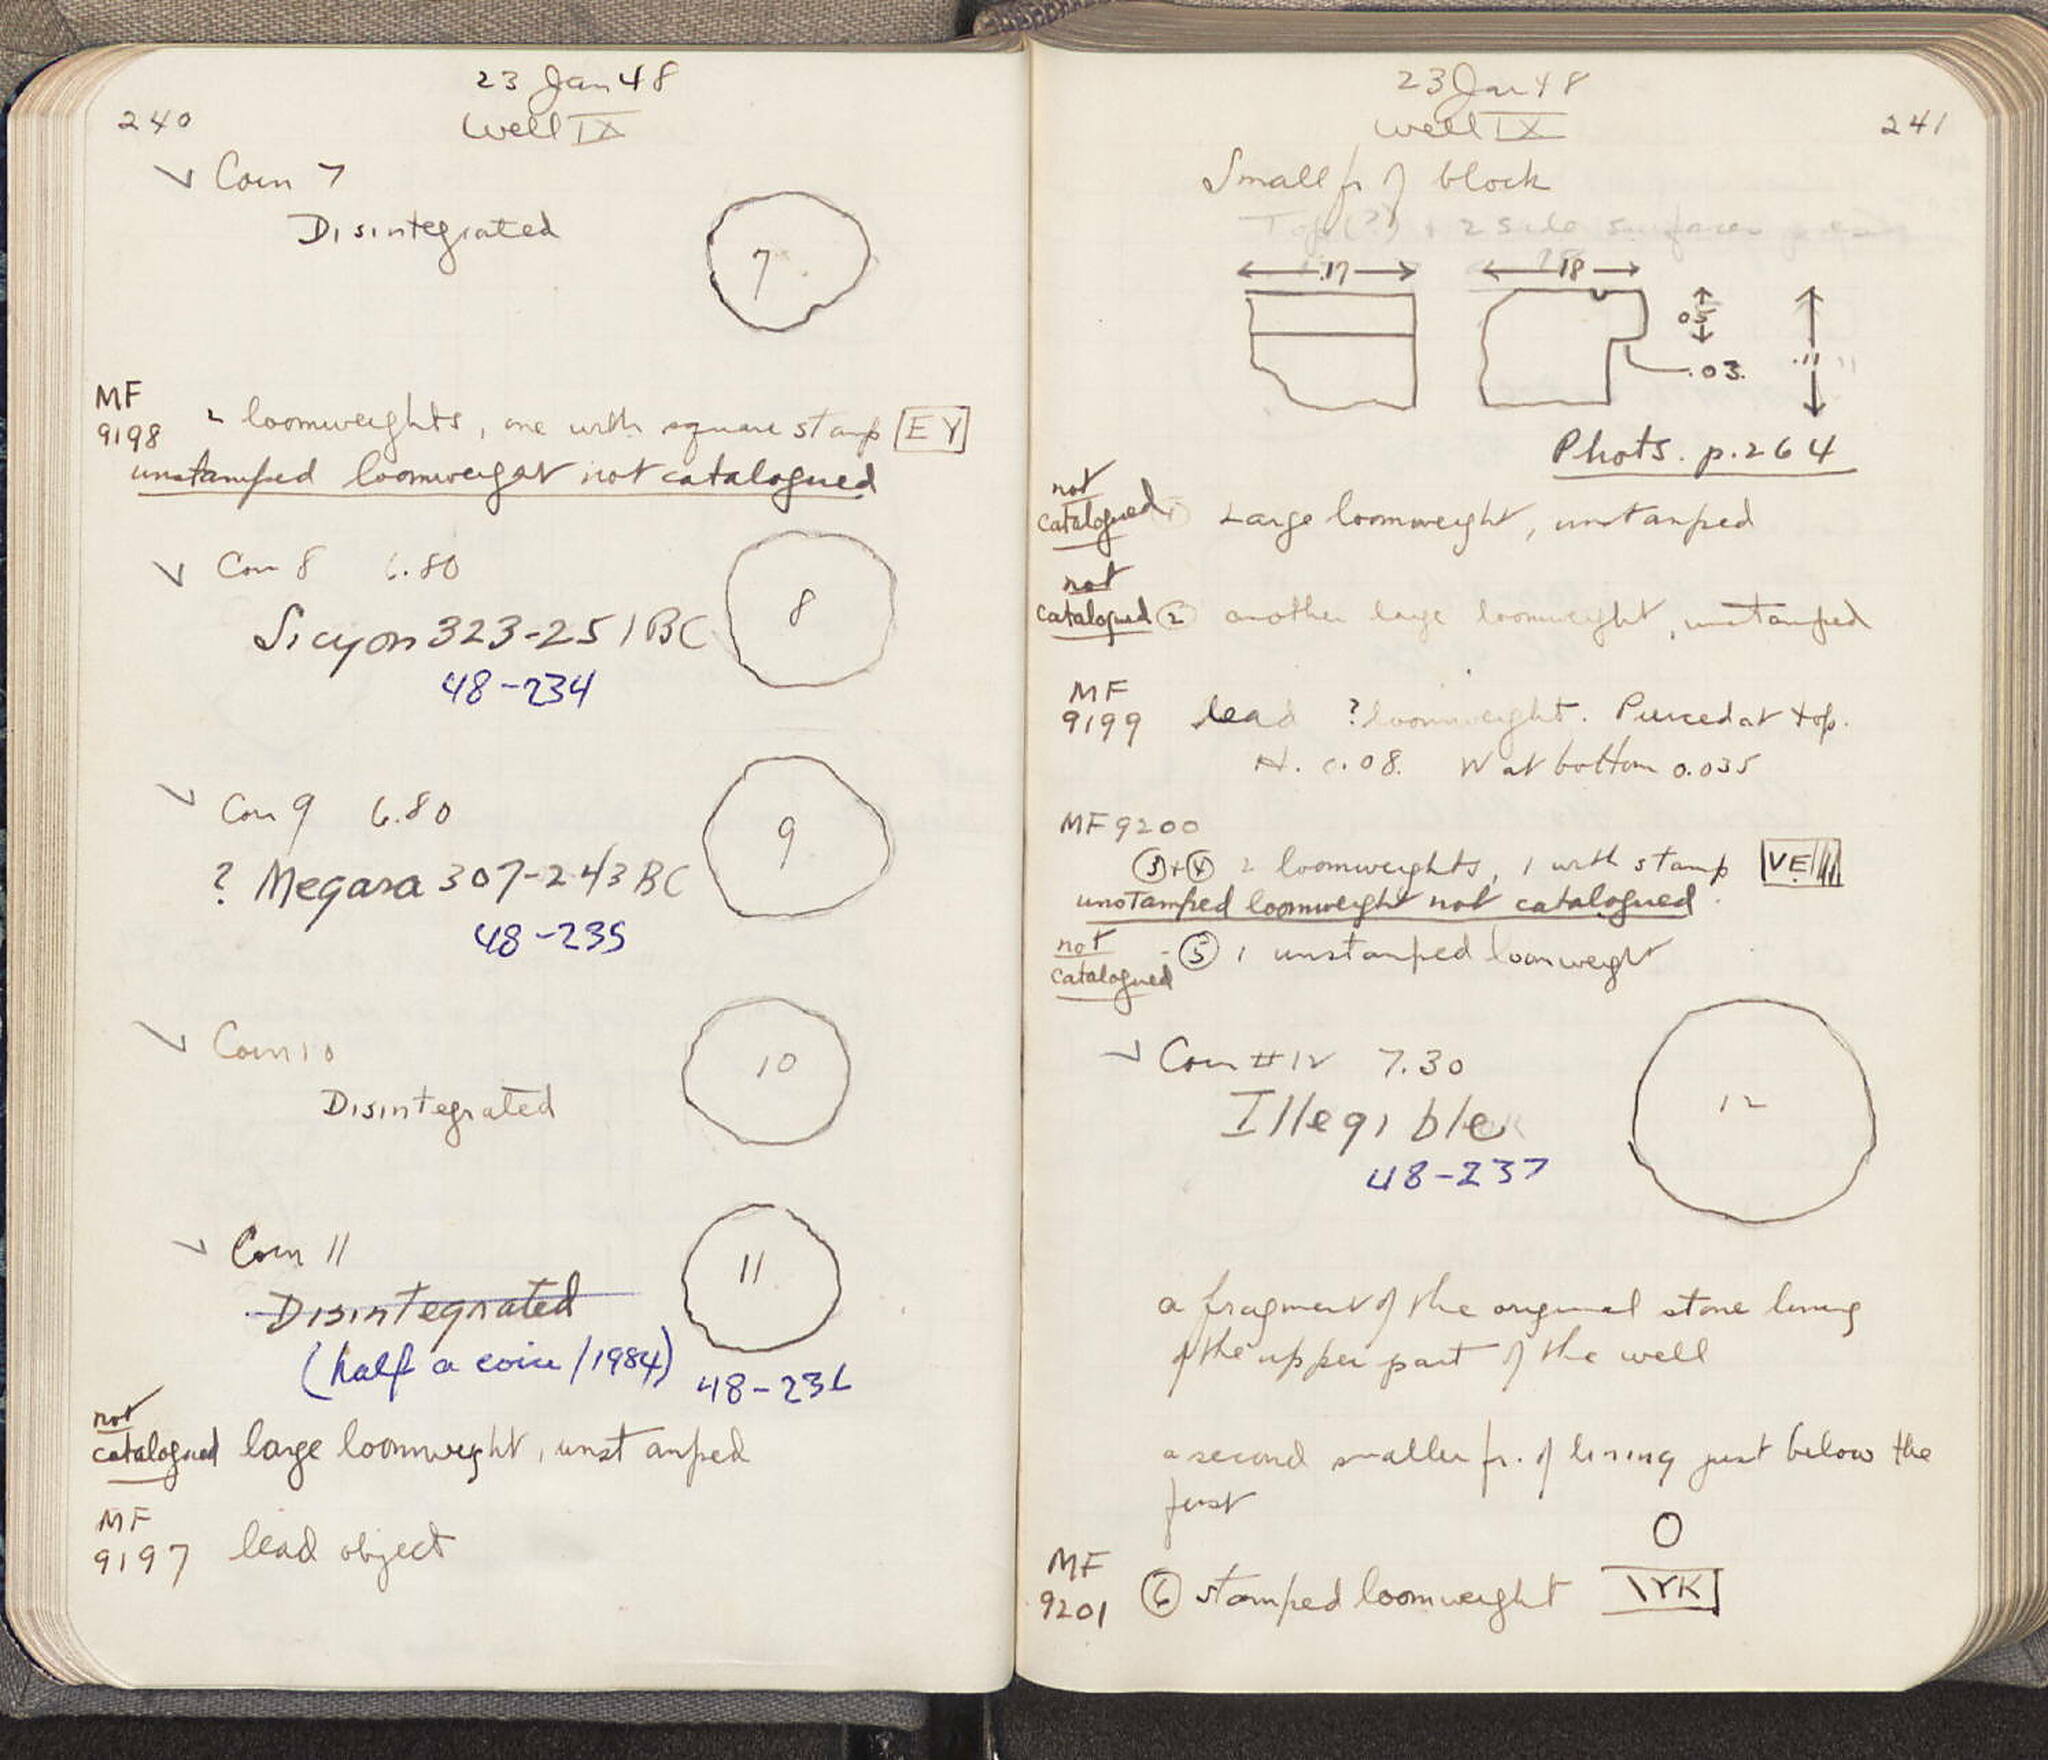 240
23 Jan 48
Well IX
Coin 7
Disintegrated
7
MF
9198
2 loomweights, one with square stamp EY
unstamped loomweight not catalogued
Coin 8 6.80
8
Sicyon 323-251 BC
48-234
Coin 9 6.80
9
? Megara 307-243 BC
48-235
Coin 10
10
Disintegrated
Coin 11
11
Disintegrated
(half a coin/1984) 48-236
not
catalogued large loomweight, unstamped
MF
9197 lead object
23 Jan 48
Well IX
241
Small fr of block
Top(?) + 2 side surfaces
.17 .18
.05
.03
.11
Phots. p.264
not
catalogued Large loomweight, unstamped
not
catalogued 2 another large loomweight, unstamped
MF
9199 lead ? loomweight. Pierced at top.
H. 0.08. W at bottom 0.035
MF 9200
3+4 2 loomweights, 1 with stamp VE
unstamped loomweight not catalogued
not
catalogued 5 1 unstamped loomweight
Coin #12 7.30
12
Illegible
48-237
a fragment of the original stone lining
of the upper part of the well
a second smaller fr. of lining just below the
first
MF
9201 6 stamped loomweight O
\YK